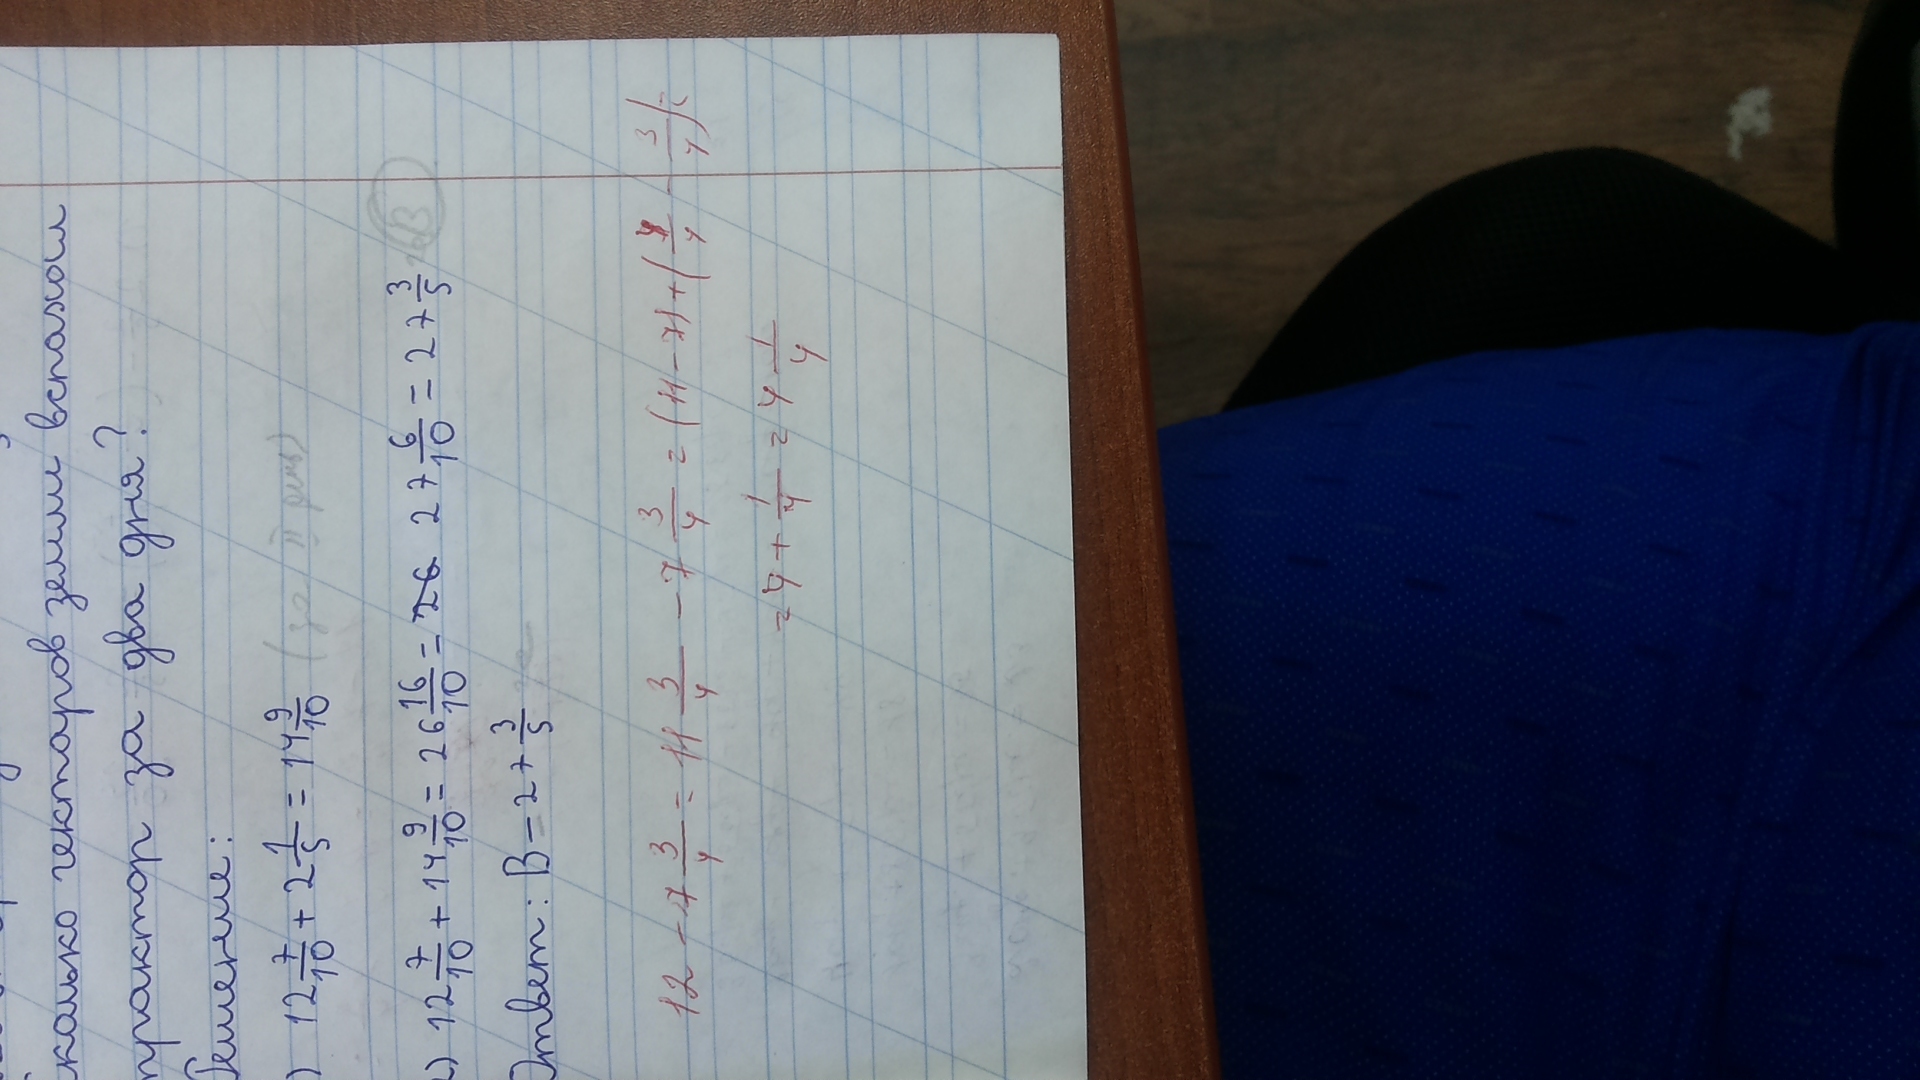 сколько гектаров земли вспахал
трактор за два дня?
Решение:
) 12 7/10 + 2 1/5 = 14 9/10 (за II день)
2) 12 7/10 + 14 9/10 = 26 16/10 = 26 27 6/10 = 27 3/5 В
Ответ: В – 27 3/5
12 – 7 3/4 = 11 3/4 – 7 3/4 = (11 – 7) + (4/4 – 3/4) =
= 4 + 1/4 = 4 1/4